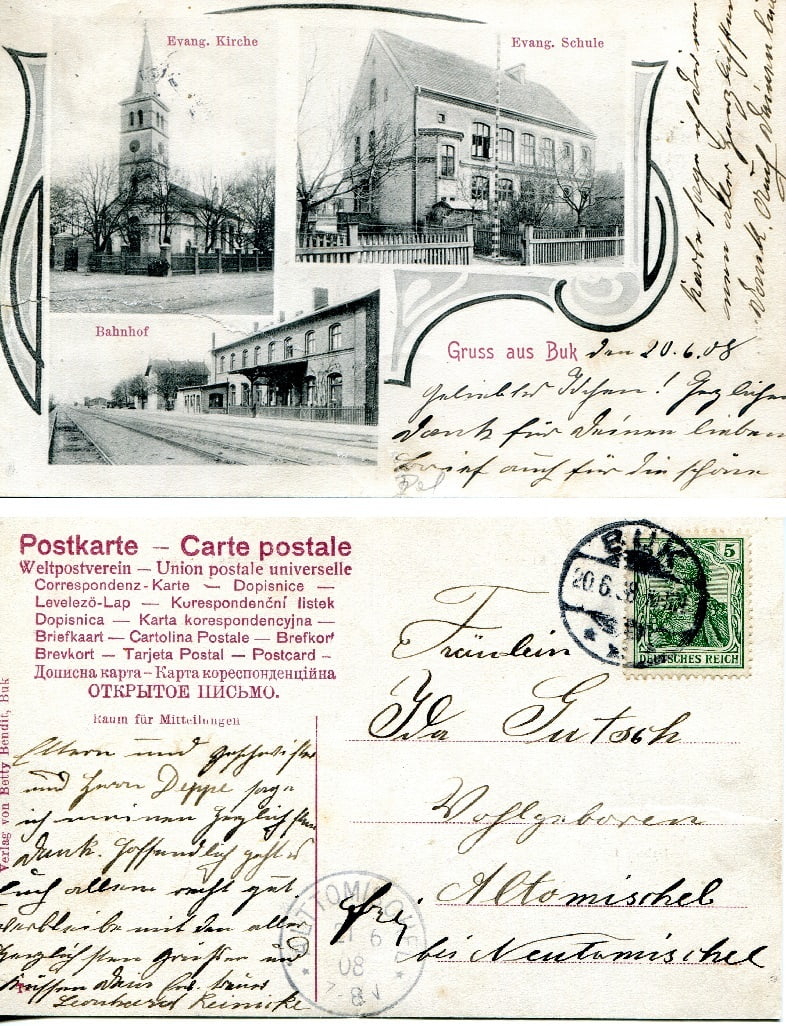 Evang. Kirche
Evang. Schule
Bahnhof
Gruss aus Buk den 20.6.08
Geliebtes Idchen! Herzlichen
Dank für Deinen lieben
Brief auch für die schöne
Karte sage ich Dir meinen
aller herzlichsten
Dank. Auch Deinen lieben
Postkarte — Carte postale
Weltpostverein — Union postale universelle
Correspondenz-Karte — Dopisnice —
Levelező-Lap — Kurespondenční listek
Dopisnica — Karta korespondencyjna —
Briefkaart — Cartolina Postale — Brefkort
Brevkort — Tarjeta Postal — Postcard —
Дописна карта — Карта кореспонденційна
ОТКРЫТОЕ ПИСЬМО.
Raum für Mitteilungen
Verlag von Betty Bendit, Buk
Eltern und Geschwister
und Herrn Deppe sage
ich meinen herzlichsten
Dank. Hoffendlich geht es
Euch allen recht gut
verbleibe mit den aller
herzlichsten Grüssen und
Küssen Dein
Leonhard Reinicke
BUK
20.6.
5
DEUTSCHES REICH
Fräulein
Ida Gutsch
Wohlgeboren
Altomischel
bei Neutomischel
21 6
08
7-8V